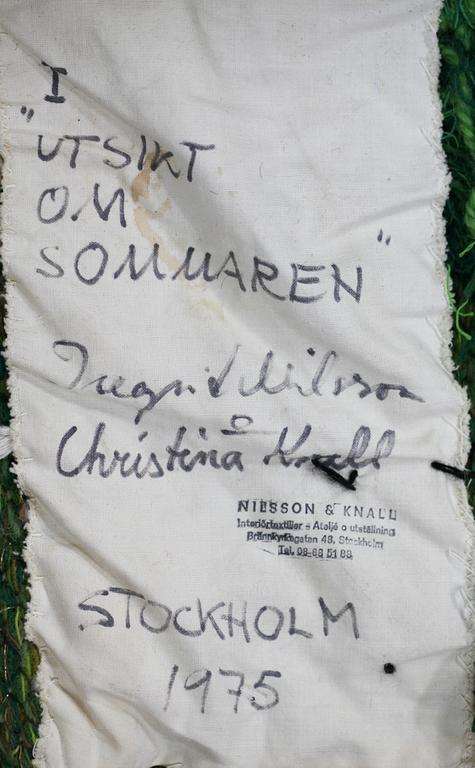 I
"UTSIKT
OM
SOMMAREN"
Ingrid Nilsson
o
Christina Knall
NILSSON & KNALL
Interiörtextilier - Ateljé o utställning
Brännkyrkagatan 48, Stockholm
Tel. 08-68 51 88
STOCKHOLM
1975